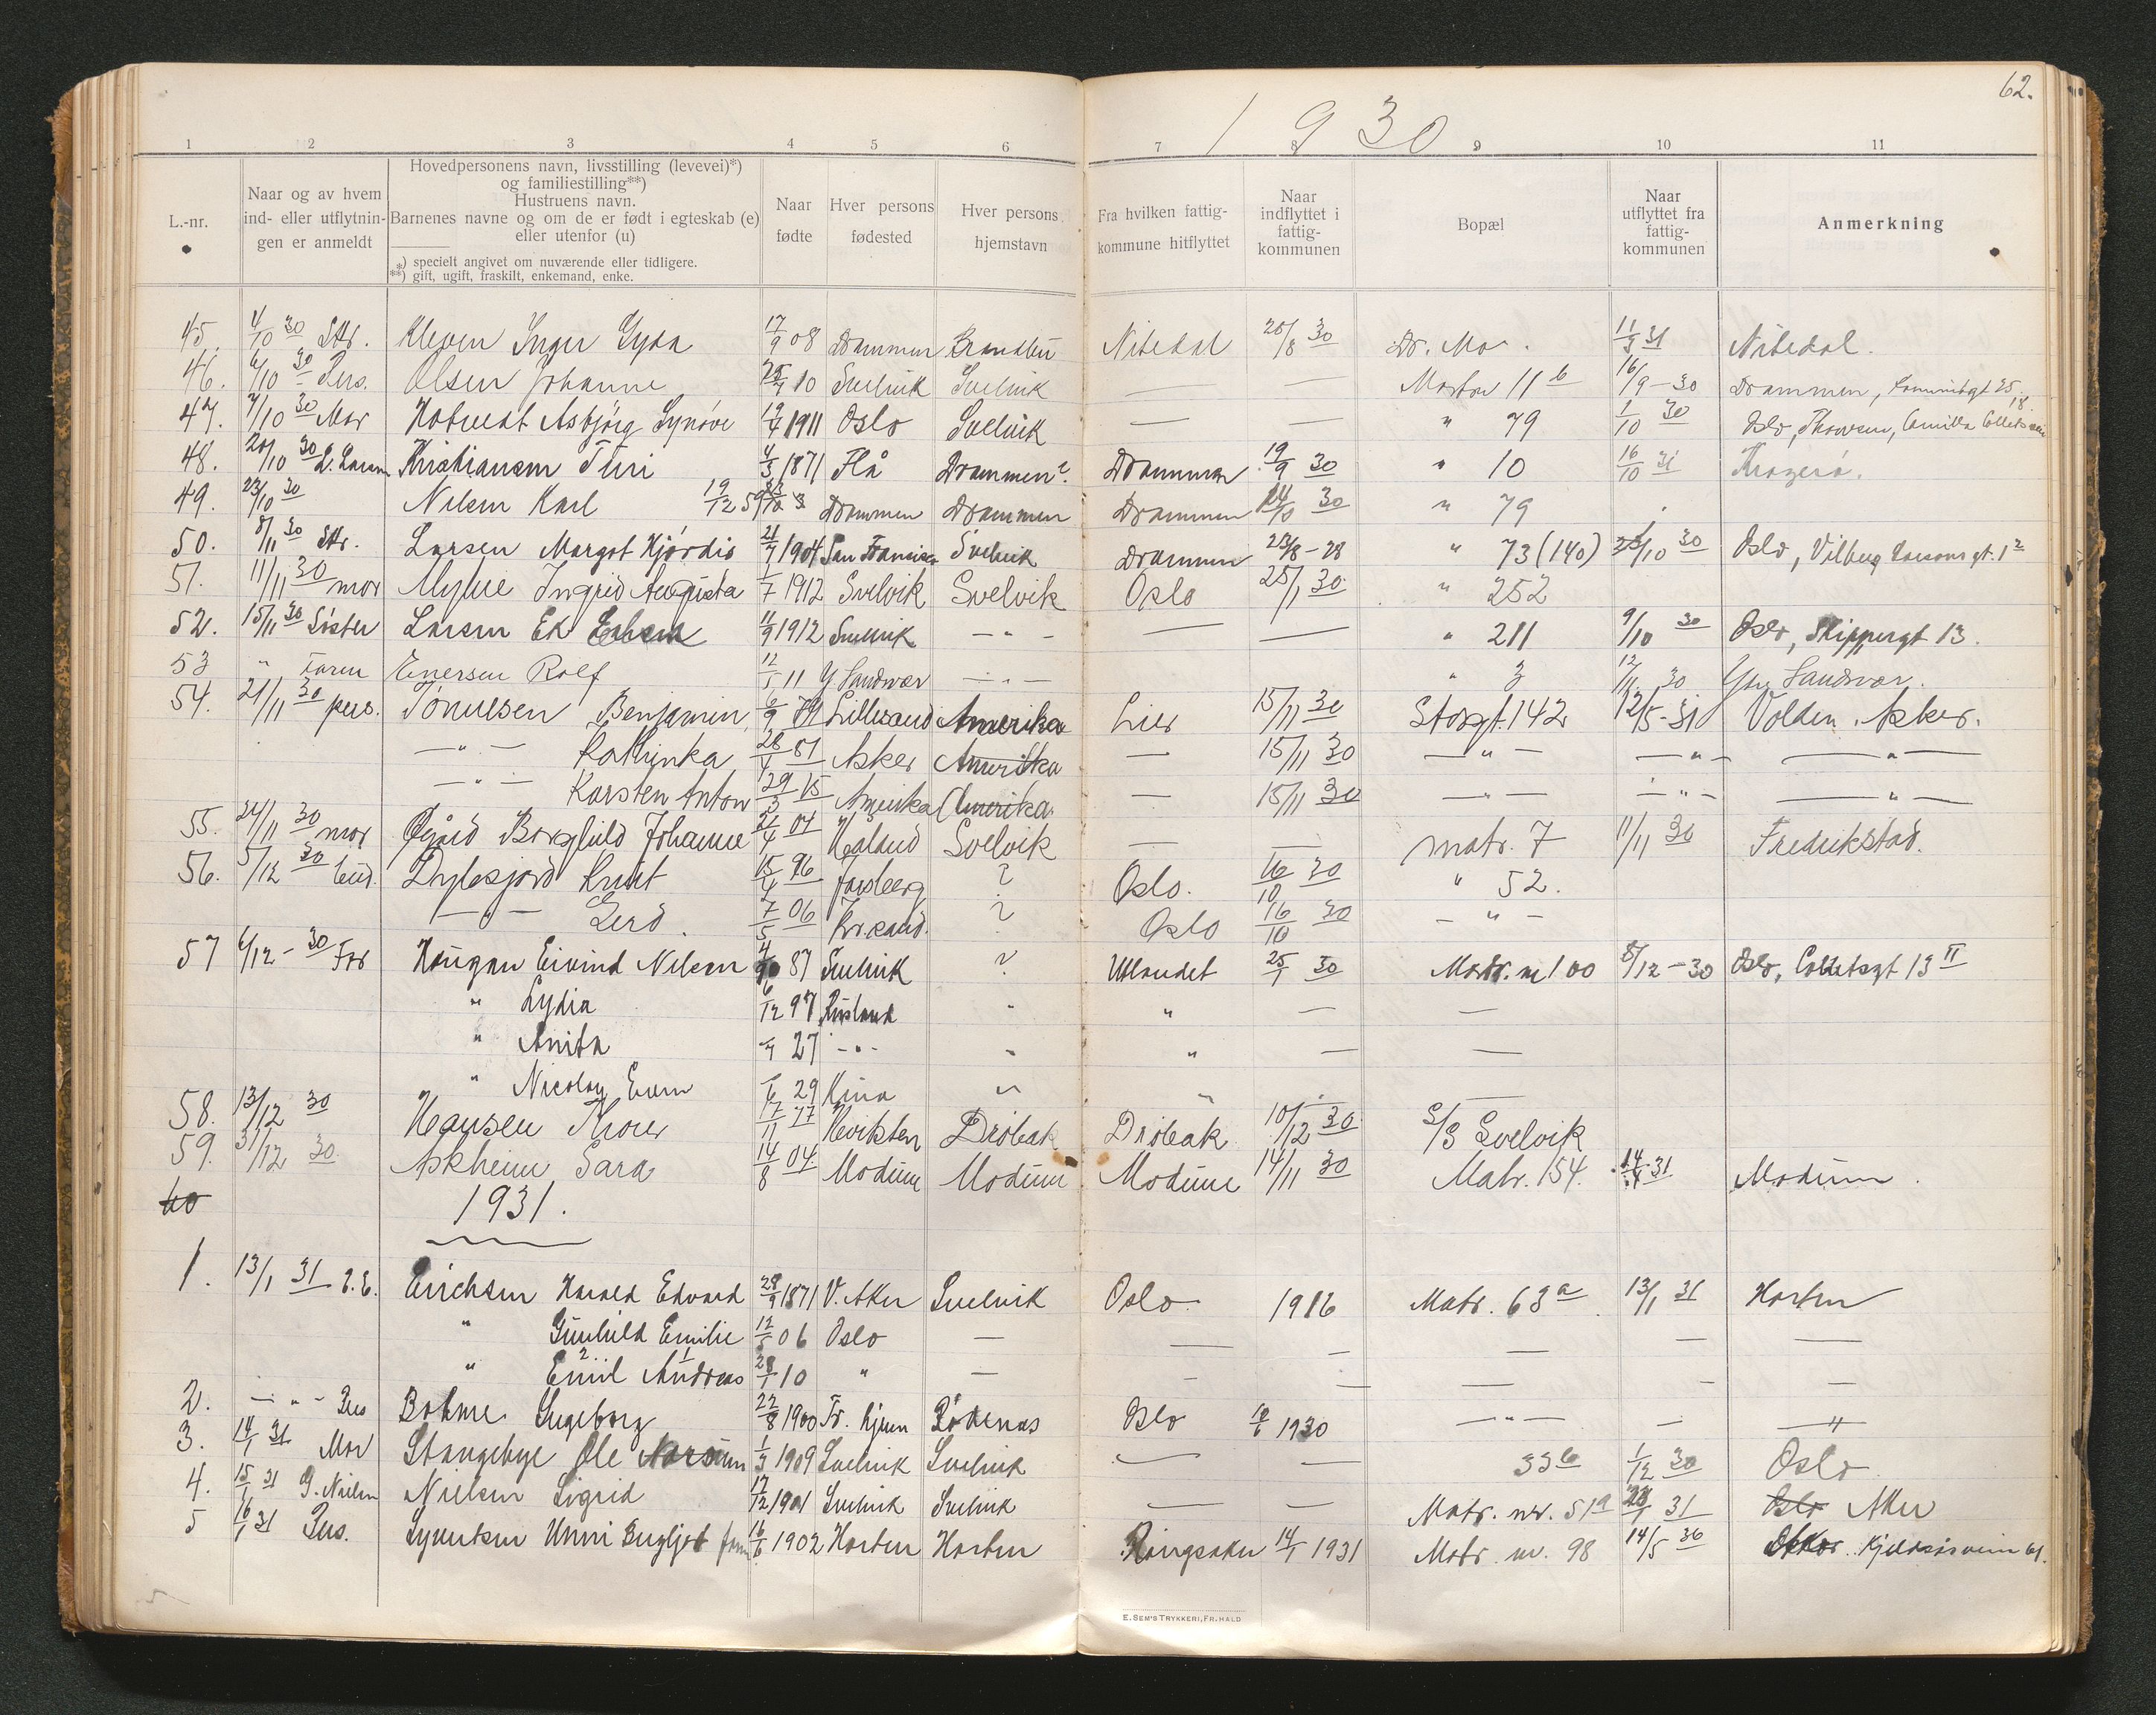 62.
1930
1 2 3 4 5 6 7 8 9 10 11
L.-nr.
Naar og av hvem ind- eller utflytnin- gen er anmeldt
Hovedpersonens navn, livsstilling (levevei)*)
og familiestilling**)
Hustruens navn.
Barnenes navne og om de er født i egteskab (e)
eller utenfor (u)
*) specielt angivet om nuværende eller tidligere.
**) gift, ugift, fraskilt, enkemand, enke.
Naar fødte
Hver persons fødested
Hver persons hjemstavn
Fra hvilken fattig- kommune hitflyttet
Naar indflyttet i fattig- kommunen
Bopæl
Naar utflyttet fra fattig- kommunen
Anmerkning
45. 4/10 30 Str. Kleven Inger Gyda 17/9 08 Drammen Brandbu Nitedal 20/8 30 Dr. Mo. 11/3 31 Nitedal.
46. 6/10 30 Pers. Olsen Johanne 10 Svelvik Svelvik — — Matr 11 b 16/9-30 Drammen,
47. 7/10 30 Mor Hotvedt Asbjörg Synöve 1911 Oslo Svelvik — — " 79 1/10 30 Oslo, Camilla Colletsvei 18.
48. 20/10 30 Kristiansen Turi 4/3 1871 Flå Drammen? Drammen 19/9 30 " 10 16/10 31 Kragerö.
49. 23/10 30 Nilsen Karl 19/12 59 Drammen Drammen Drammen 30 " 79
50. 8/11 30 Str. Larsen Margot Hjördis 21/7 1904 San Francisco Svelvik Drammen 23/8-28 " 73 (140) 25/10 30 Oslo,
51. 11/11 30 mor Myhre Ingrid Augusta 1/7 1912 Svelvik Svelvik Oslo 25/1 30 " 252
52. 15/11 30 Söster Larsen 11/9 1912 Svelvik — " — — — " 211 9/10 30 Oslo, Skippergt 13.
53 " Faren Enersen Rolf 12/5 11 Y Sandsvær — " — " 3 12/11 30 Ytre Sandsvær.
54. 21/11 30 pers. Tönnesen Benjamin 6/9 79 Lillesand Amerika Lier 15/11 30 Storgt. 142 12/5-31 Volden. Asker.
— " — Kathinka 28/4 81 Asker Amerika — 15/11 30 — " — — " — — " —
— " — Karsten Anton 29/3 15 Amerika Amerika — 15/11 30 — " — — " — — " —
55. 24/11 30 mor Øgård Borghild Johanne 21/4 04 Svelvik — — matr. 7 11/11 30 Fredrikstad.
56. 5/12 30 bud. Knut 15/4 96 ? Oslo. 16/10 30 " 52.
— " — Gerd. 7/5 06 Kr.sand. ? Oslo 16/10 30 — " —
57 6/12-30 Far Haugan Eivind Nilsen 87 Svelvik ? Utlandet 25/1 30 Matr. nr 100 8/12-30 Oslo, Colletsgt 13 II
" Lydia 6/12 97 Rusland " " — —
" Anita 27 — " — " " — —
" Nicolay 29 Kina " " — —
58. 13/12 30 Hansen Thorer 17/11 77 Drøbak Drøbak 10/12 30 S/S Svelvik
59. 31/12 30. Askheim Sara 14/8 04 Modum Modum Modum 14/11 30 Matr. 154. 31 Modum.
60
1931.
1. 13/1 31 E. E. Erichsen Harald Edvard 28/9 1871 V. Aker Svelvik Oslo 1916 Matr. 63 a 13/1 31 Horten
" Gunhild Emilie 12/5 06 Oslo — — — — — —
" Emil 2 Andreas 1 28/1 10 " — — — — — —
2. — " — Pers Bøhmer Ingeborg 22/8 1900 Rödenes Oslo 1930 — " — — — " —
3. 14/1 31 Mor Stangebye Ole 1/3 1909 Svelvik Svelvik — — 33 b 1/12 30 Oslo
4. 15/1 31 G. Nielsen Nielsen Sigrid 17/12 1901 Svelvik Svelvik — — Matr. nr. 51 a 31 Oslo Aker
5 16/1 31 Pers. Syvertsen Unni Bergljot 16/6 1902 Horten Horten Ringsaker 14/1 1931 Matr. nr. 98 14/5 36 Kjeldsåsveien 61.
E. SEM'S TRYKKERI, FR.HALD